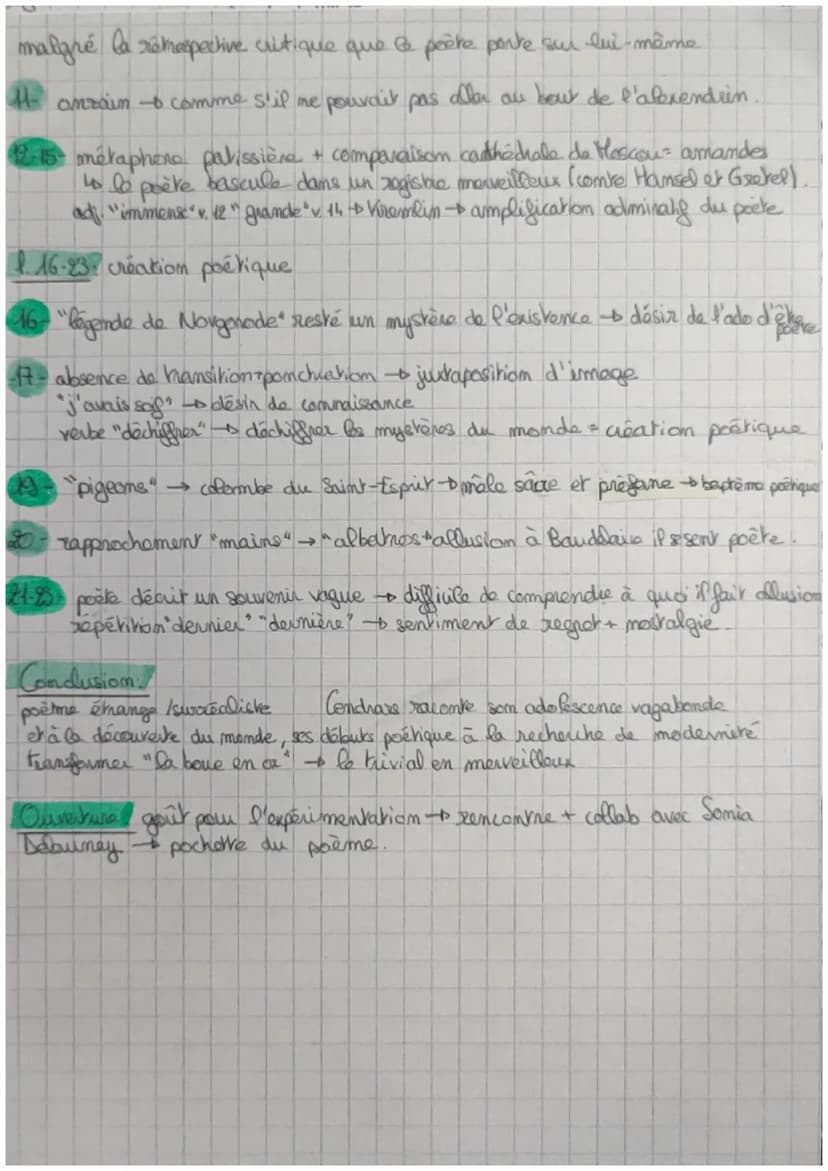 malgré la rétrospective critique que le poète porte sur lui-même
11- anodin → comme s'il ne pouvait pas aller au bout de l'alexendrin.
12-15- métaphore patissière + comparaison cathédrale de Moscou = amandes
↳ le poète bascule dans un registre merveilleux (conte Hansel et Gretel).
adj. "immense" v. 12 "grande" v. 14 → Kremlin → amplification admiratif du poète
l. 16-23: création poétique
16- "légende de Novgorode" resté un mystère de l'existence → désir de l'ado d'être poète
17- absence de transition + ponctuation → juxtaposition d'image
"j'avais soif" → désir de connaissance
verbe "déchiffrer" → déchiffrer les mystères du monde = création poétique
19- "pigeons" → colombe du Saint-Esprit → mêle sacre et profane → baptême poétique
20- rapprochement "mains" → "albatros" → allusion à Baudelaire il se sent poète.
21-23- poète décrit un souvenir vague → difficile de comprendre à quoi il fait allusion
répétition "dernier" "dernière" → sentiment de regret + nostalgie.
Conclusion:
poème étrange / surréaliste Cendrars raconte son adolescence vagabonde
et à la découverte du monde, ses débuts poétique à la recherche de modernité
transformer "la boue en or" → le trivial en merveilleux
Ouverture: goût pour l'expérimentation → rencontre + collab avec Sonia
Delaunay → pochette du poème.